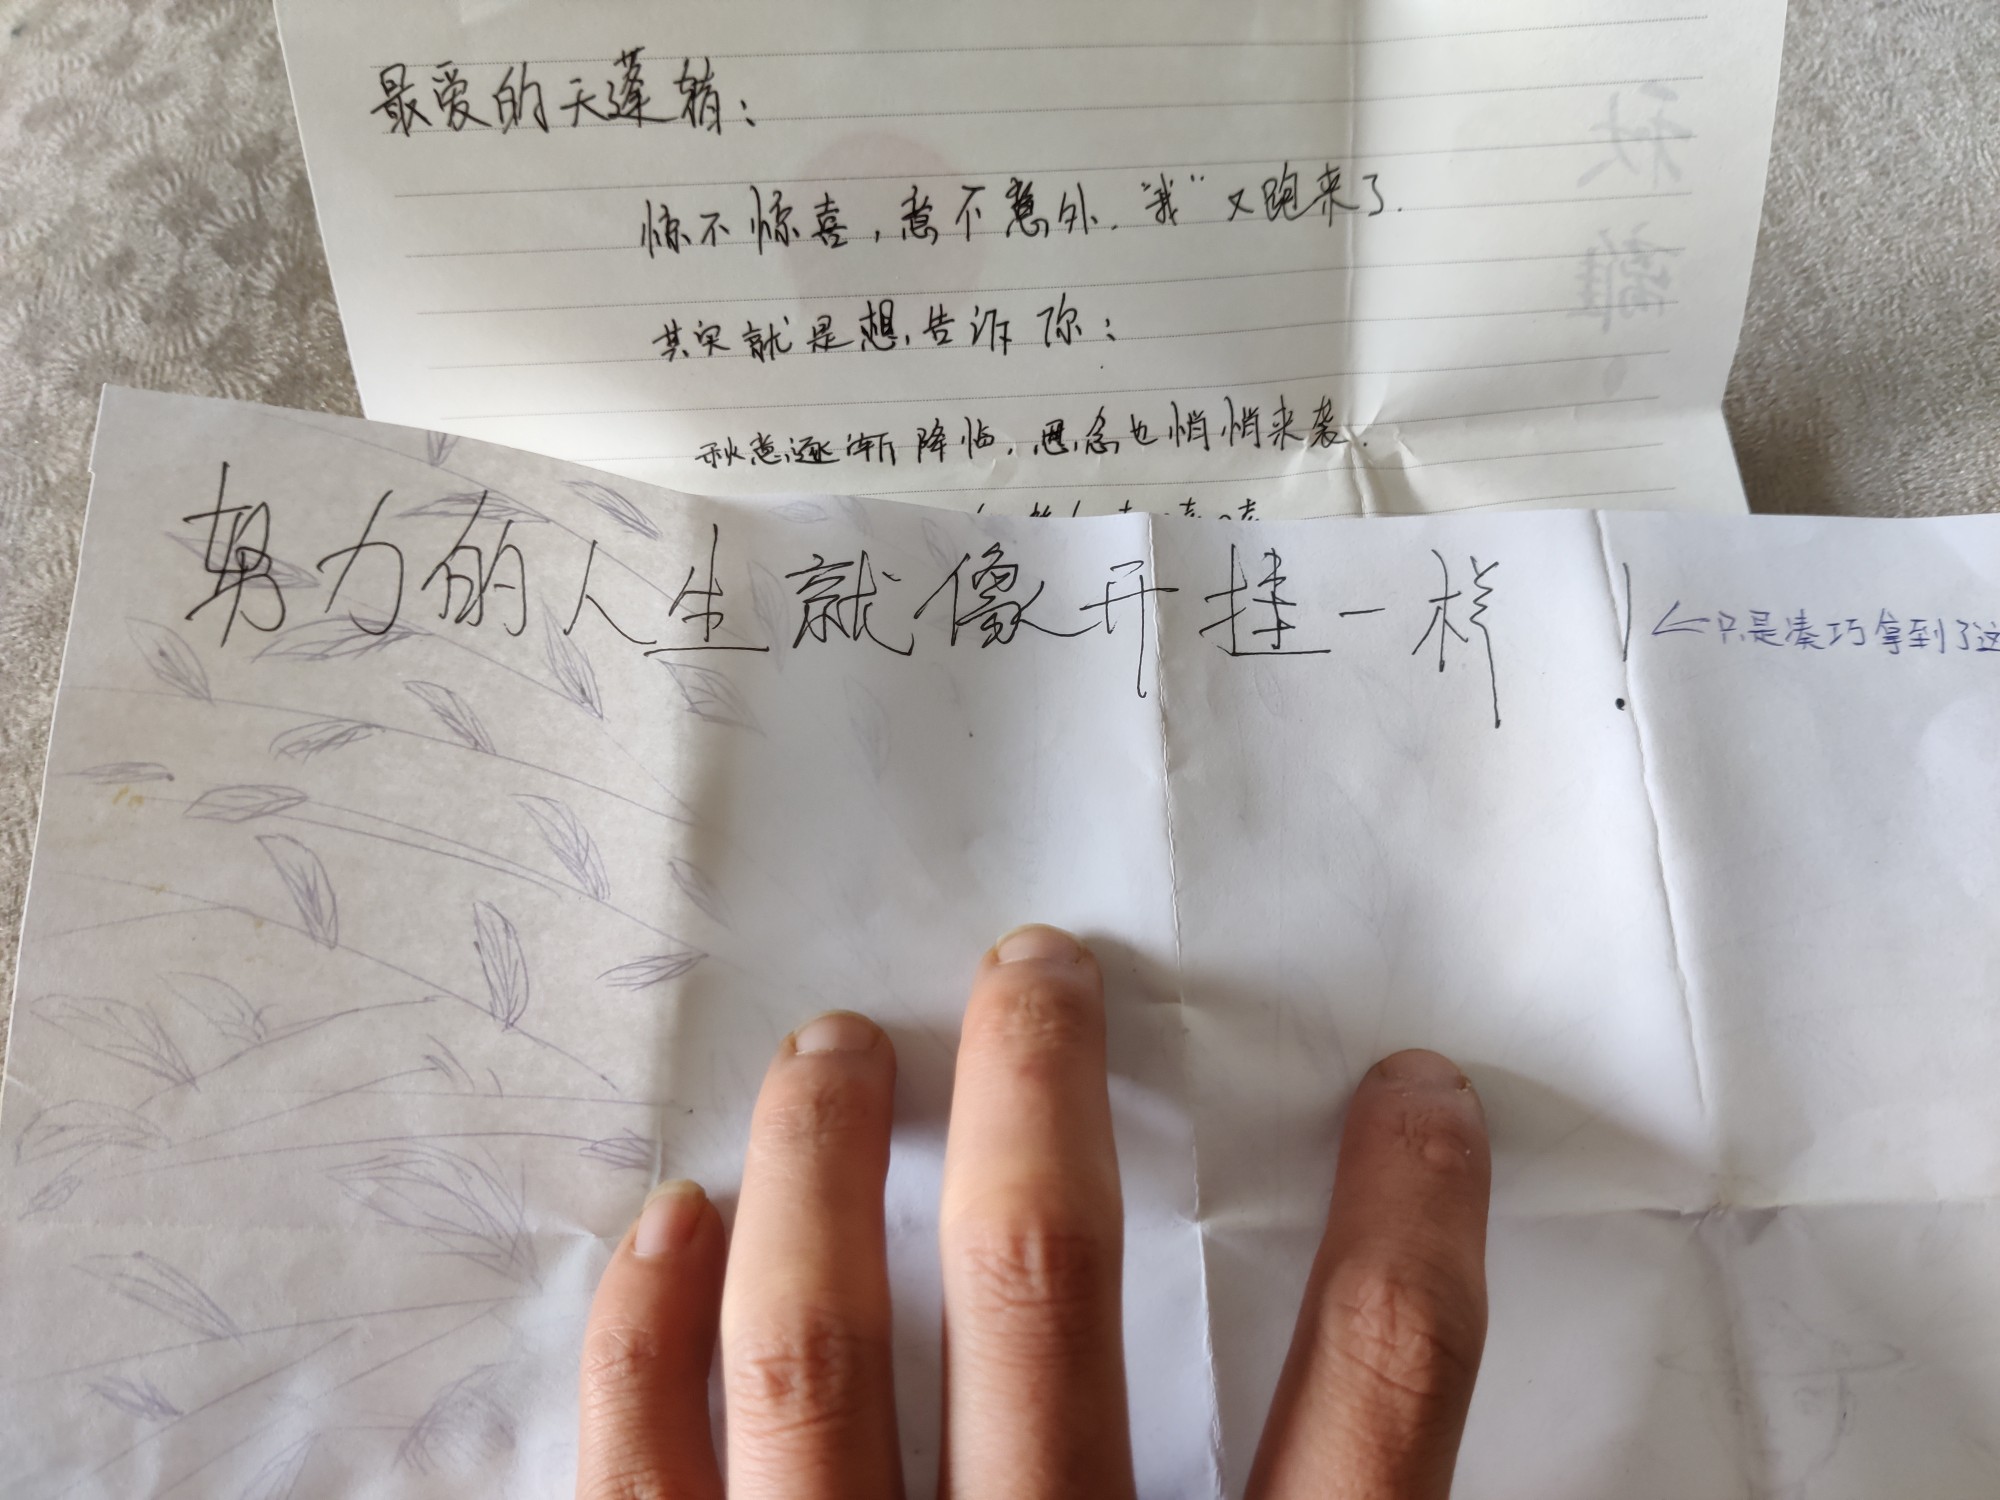 最爱的天蓬猪：
惊不惊喜，意不意外.“我”又跑来了.
其实就是想告诉你：
秋意逐渐降临.思念也悄悄来袭.
努力的人生就像开挂一样！
←只是凑巧拿到了这